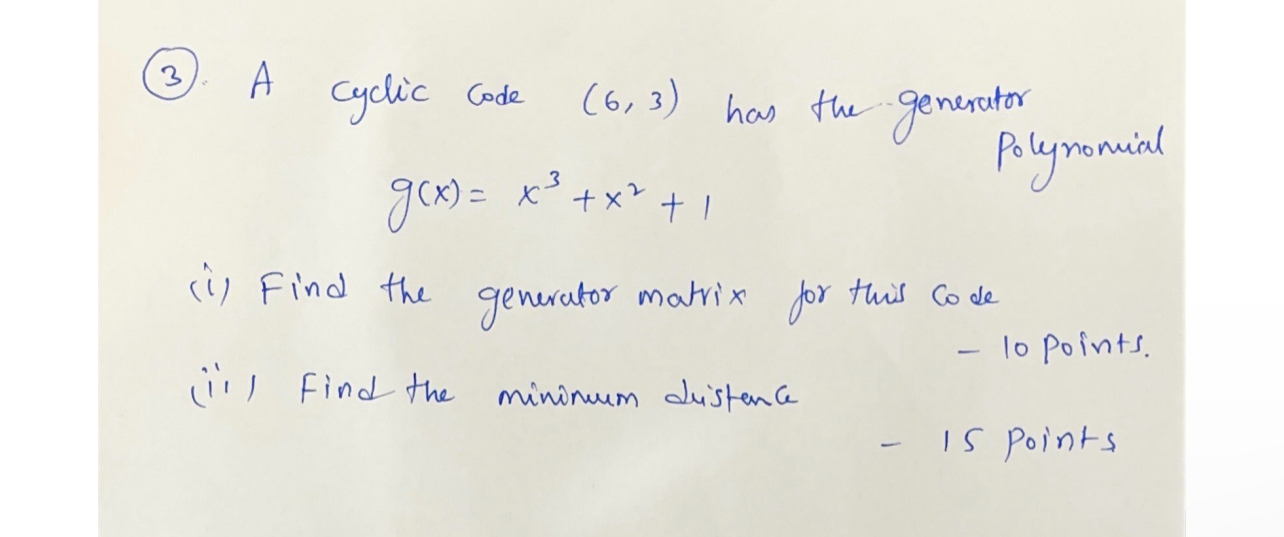 ③. A cyclic Code (6, 3) has the generator
Polynomial
g(x) = x³ + x² + 1
(i) Find the generator matrix for this Code
- 10 Points.
(ii) Find the minimum distance
- 15 Points